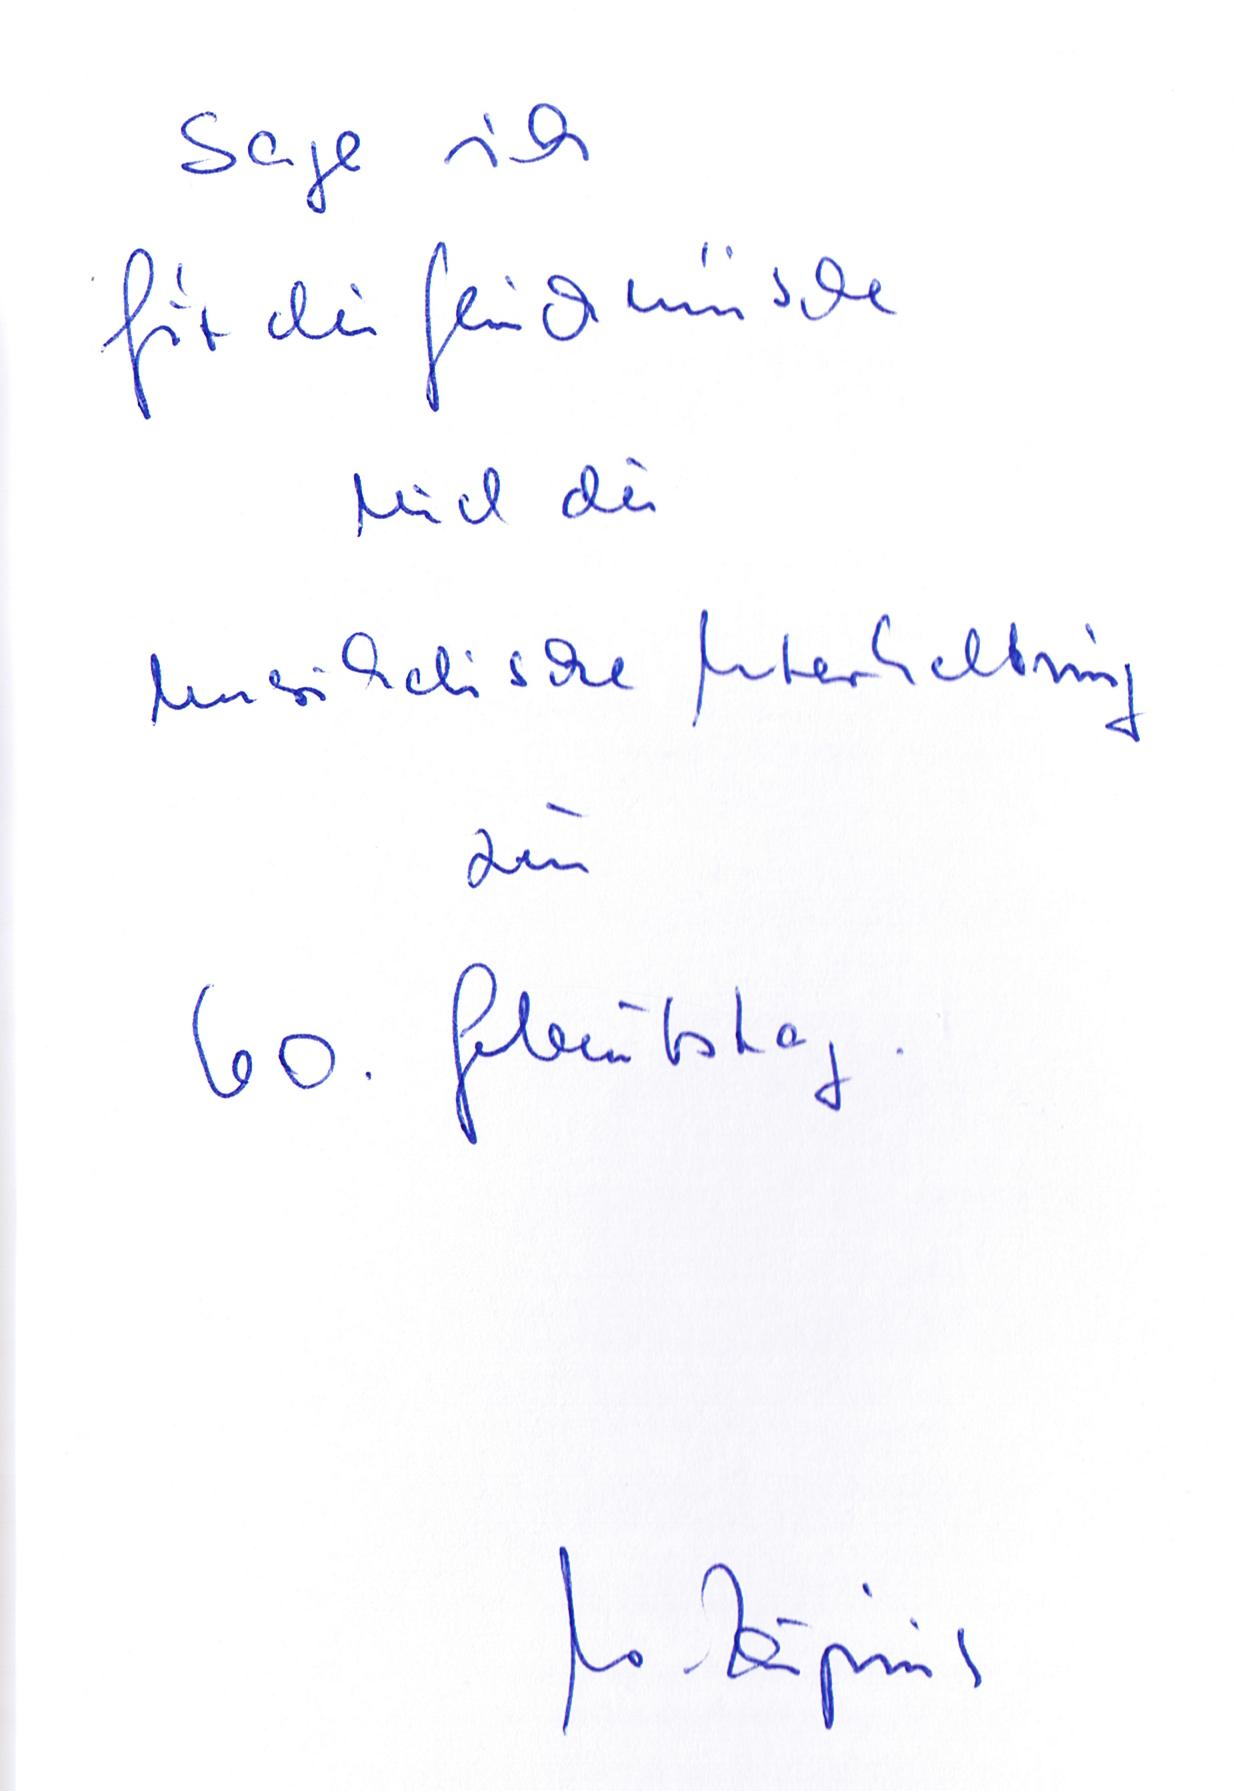 Sage ich
für die Glückwünsche
und die
musikalische Unterhaltung
zum
60. Geburtstag.